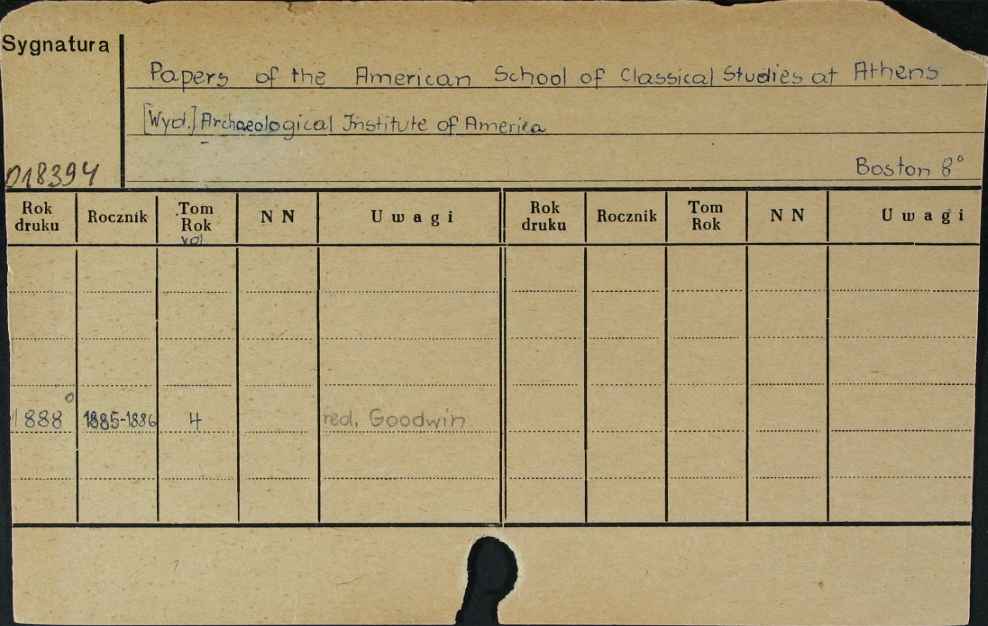 Sygnatura
Papers of the American School of Classical Studies at Athens
[Wyd.] Archaeological Institute of America
Boston 8°
D18394
Rok druku Rocznik Tom Rok vol NN Uwagi Rok druku Rocznik Tom Rok NN Uwagi
1888° 1885-1886 4 red. Goodwin